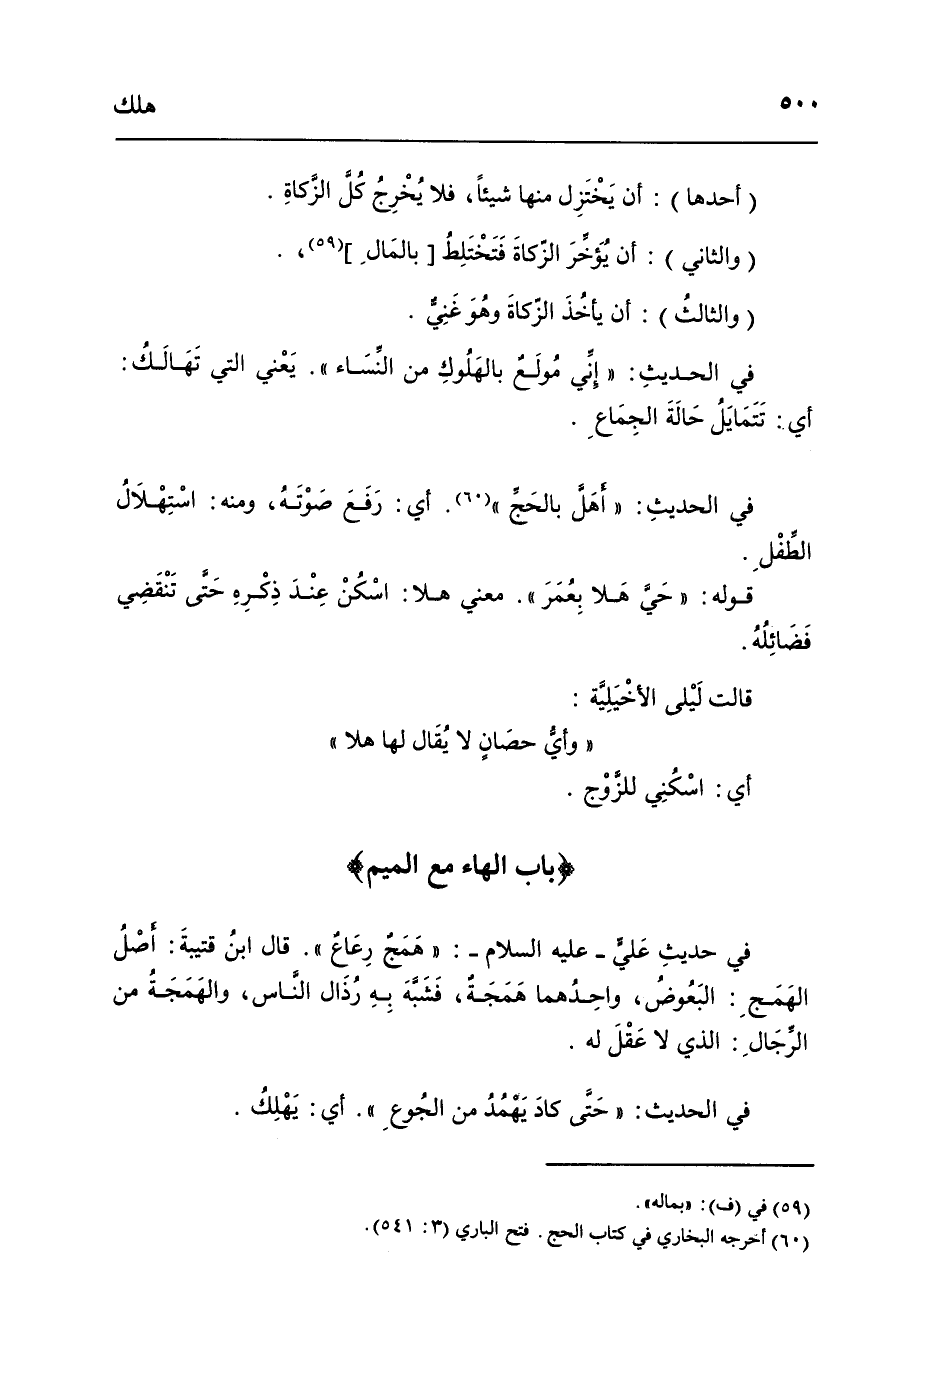 ٥٠٠ هلك
( أحدها ) : أن يَخْتَزِل منها شيئاً، فلا يُخْرِجُ كُلَّ الزَّكاةِ .
( والثاني ) : أن يُؤَخِّرَ الزّكاةَ فَتَخْتَلِطُ [ بالمَالِ ](٥٩)، .
( والثالثُ ) : أن يأخُذَ الزّكاةَ وهُوَ غَنِيٌّ .
في الحديثِ: « إنِّي مُولَعٌ بالهَلُوكِ من النِّسَاء ». يَعْني التي تَهَالَكُ:
أي: تَتَمَايَلُ حَالَةَ الجِمَاعِ .
في الحديثِ: « أَهَلَّ بالحَجِّ »(٦٠). أي: رَفَعَ صَوْتَهُ، ومنه: اسْتِهْلَالُ
الطِّفْلِ .
قوله: « حَيَّ هَلا بِعُمَرَ ». معني هلا: اسْكُنْ عِنْدَ ذِكْرِهِ حَتَّى تَنْقَضِي
فَضَائِلُهُ.
قالت لَيْلى الأخْيَلِيَّة :
« وأيُّ حصَانٍ لا يُقَال لها هلا »
أي: اسْكُنِي للزَّوْج .
﴿باب الهاء مع الميم﴾
في حديثِ عَليٍّ ـ عليه السلام ـ : « هَمَجٌ رِعَاعٌ ». قال ابنُ قتيبةَ: أَصْلُ
الهَمَجِ : البَعُوضُ، واحِدُهما هَمَجَةٌ، فَشَبَّهَ بِهِ رُذَال النَّاس، والهَمَجَةُ من
الرِّجَالِ: الذي لا عَقْلَ له .
في الحديث: « حَتَّى كادَ يَهْمُدُ من الجُوعِ ». أي: يَهْلِكُ .
(٥٩) في (ف): «بماله».
(٦٠) أخرجه البخاري في كتاب الحج. فتح الباري (٣: ٥٤١).